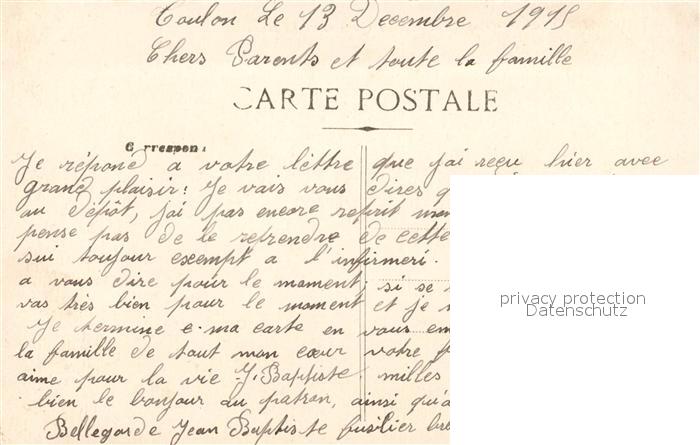 Toulon Le 13 Decembre 1915
Chers Parents et toute la famille
CARTE POSTALE
Je répond a votre lèttre que j'ai reçu hier avec
grand plaisir: Je vais vous dires
au dépôt, j'ai pas encore reprit
pense pas de le reprendre de cette
sui toujour exempt a l'infirmeri.
a vous dire pour le moment; si se
vas très bien pour le moment et je
Je termine e ma carte en vous
la famille de tout mon cœur votre
aime pour la vie J. Baptiste. milles
bien le bonjour au patron, ainsi
Bellegarde Jean Baptiste fusilier
privacy protection
Datenschutz